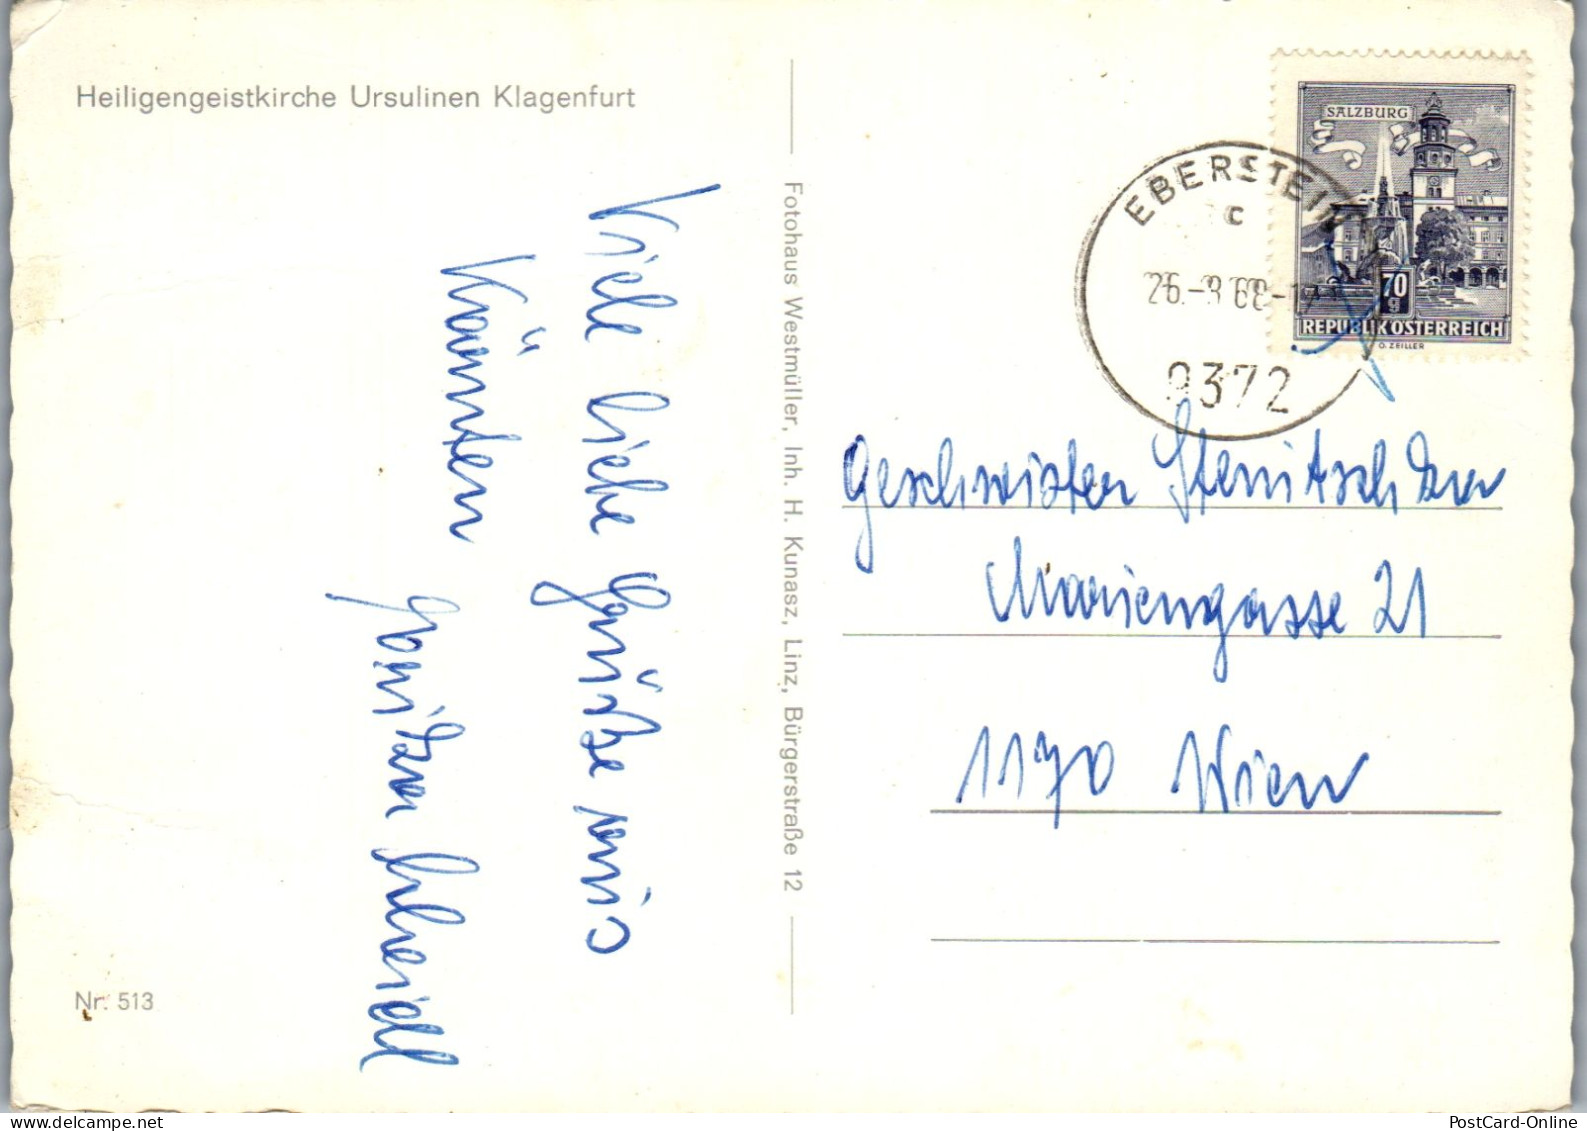 Heiligengeistkirche Ursulinen Klagenfurt
Viele liebe Grüße aus
Kärnten
Nr. 513
Fotohaus Westmüller, Inh. H. Kunasz, Linz, Bürgerstraße 12
SALZBURG
70
g
REPUBLIK ÖSTERREICH
O. ZEILLER
EBERSTEIN
c
9372
Geschwister
Mariengasse 21
1170 Wien
PostCard-Online